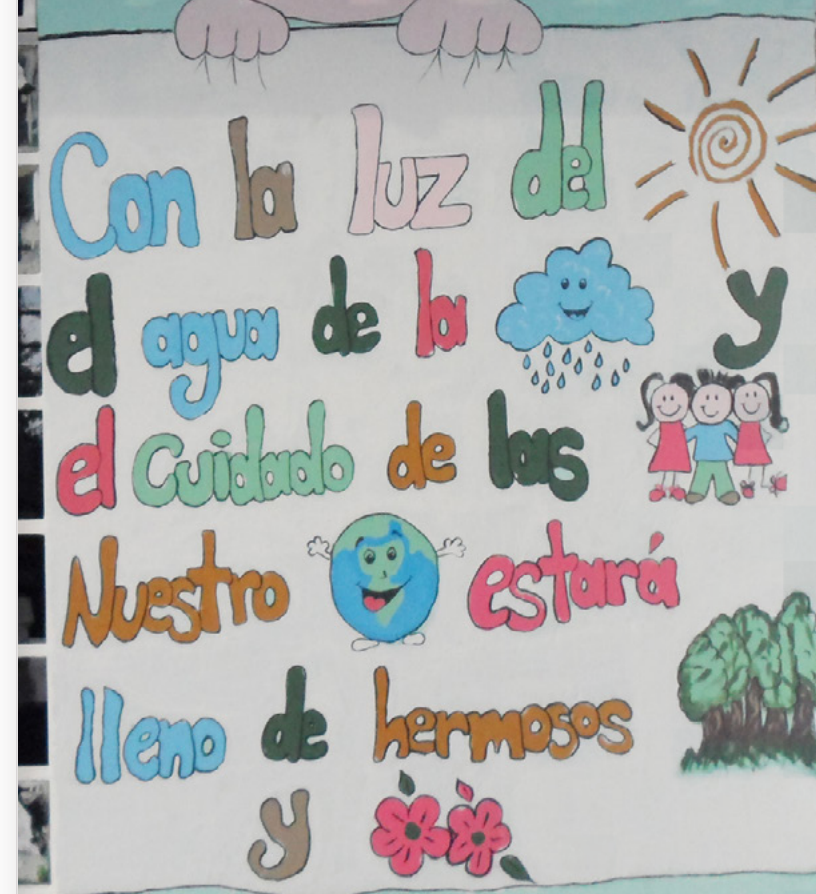 Con la luz del
el agua de la y
el cuidado de las
Nuestro estará
lleno de hermosos
y